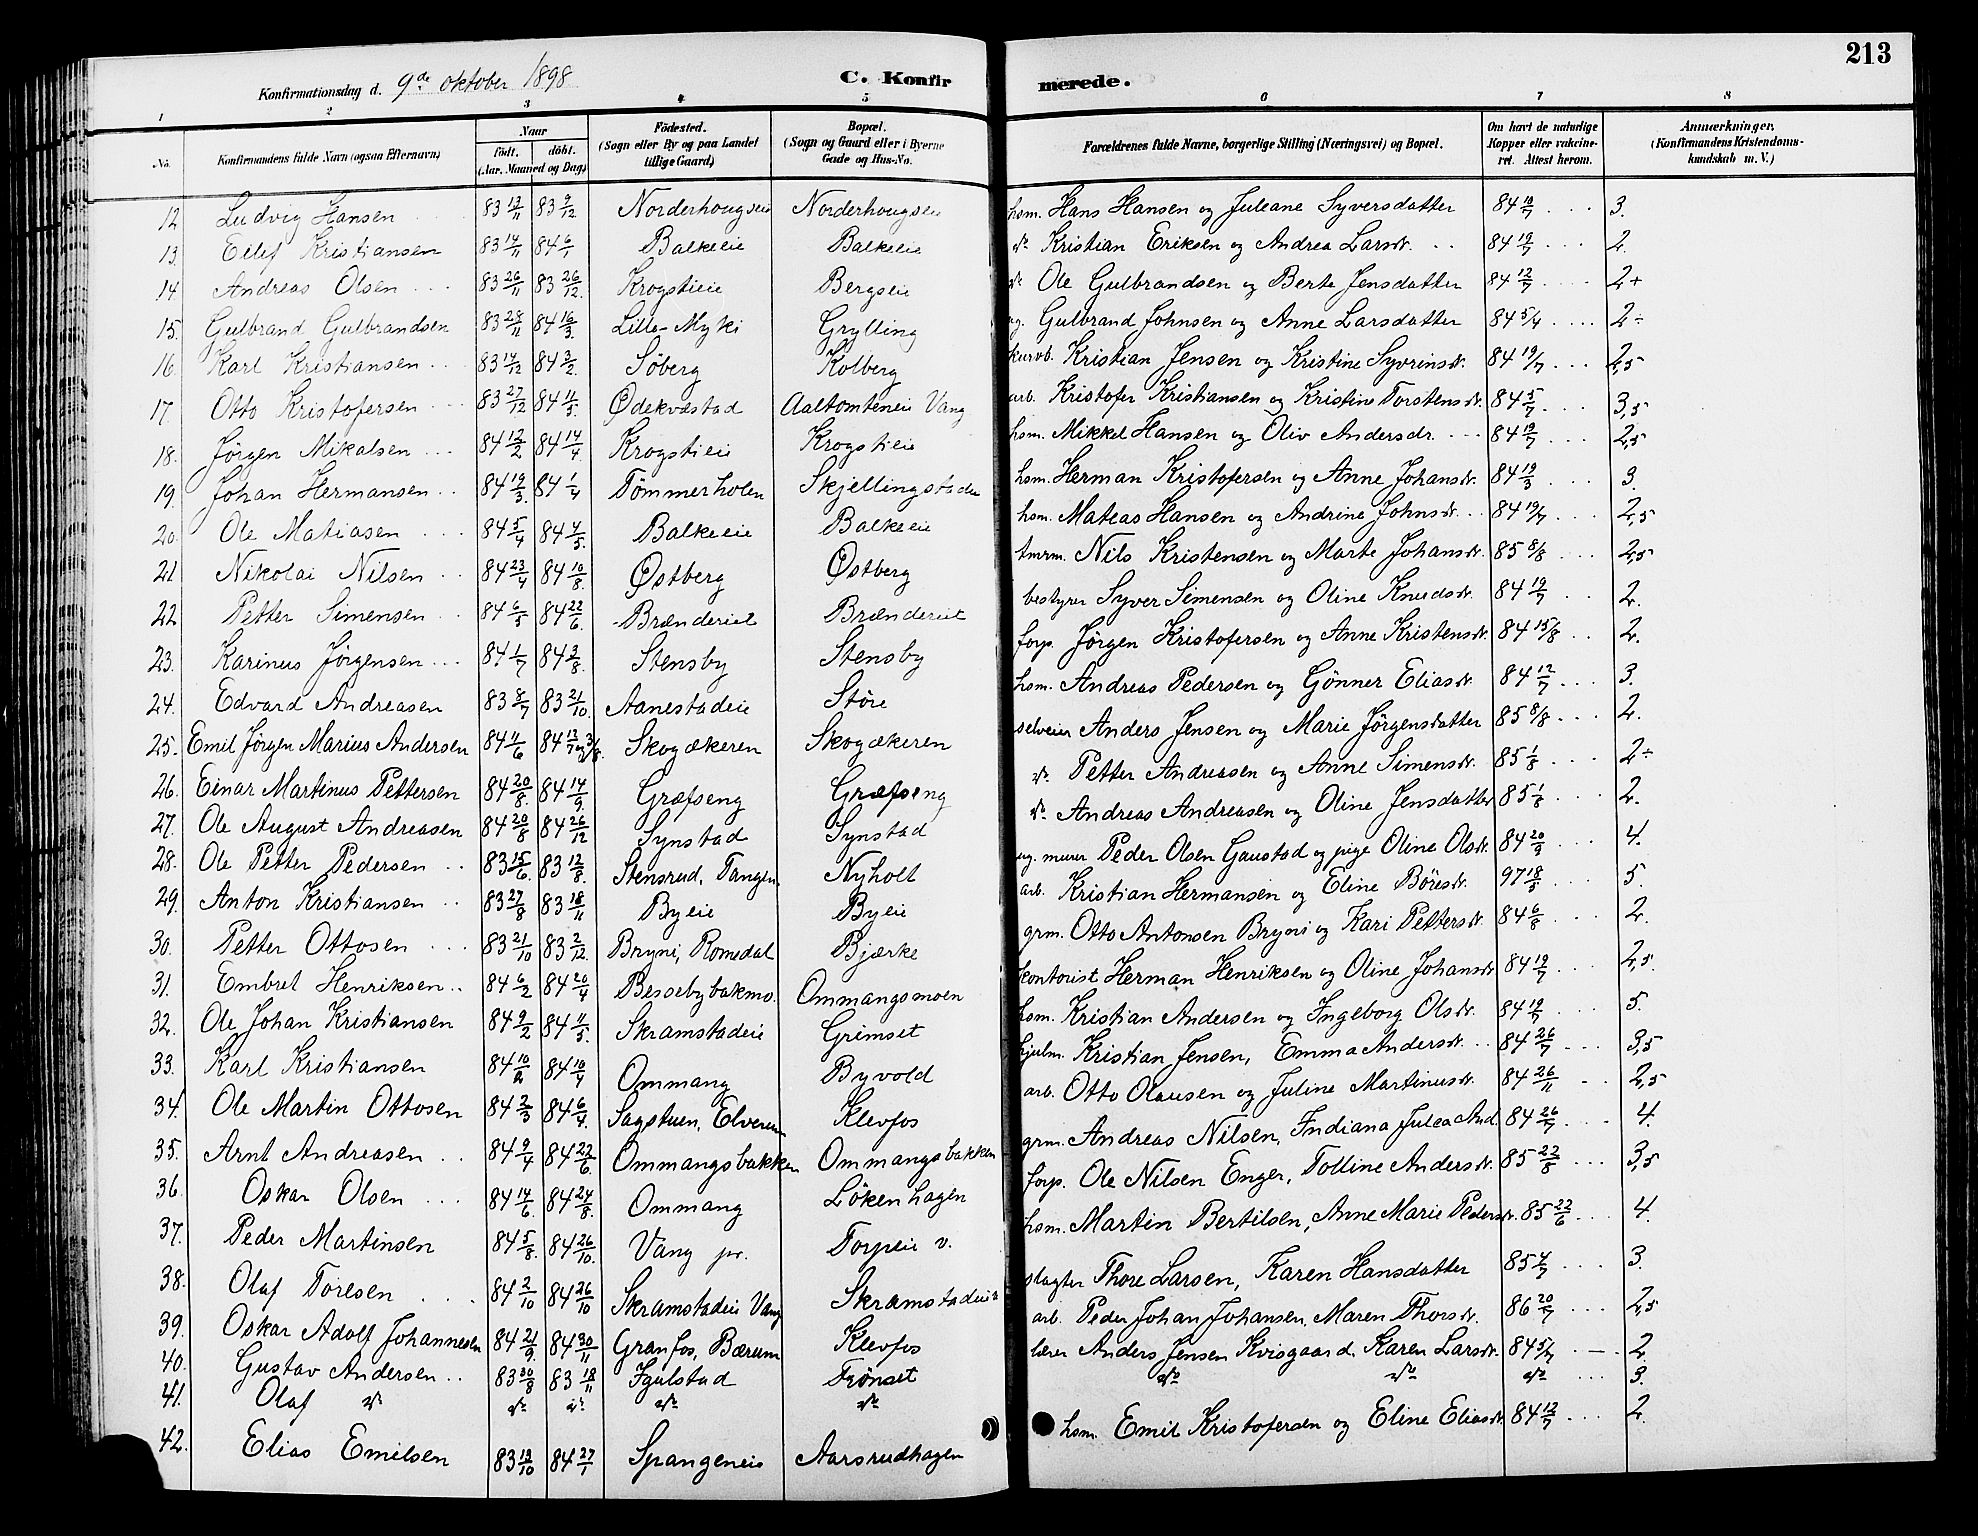 213
Konfirmationsdag d. 9de oktober 1898
C. Konfirmerede.
1 2 3 4 5 6 7 8
No. Konfirmandens fulde Navn (ogsaa Efternavn) Naar födt. döbt. (Aar. Maaned og Dag) Födested. (Sogn eller By og paa Landet tillige Gaard) Bopæl. (Sogn og Gaard eller i Byerne Gade og Hus-No. Forældrenes fulde Navne, borgerlige Stilling (Næringsvei) og Bopæl. Om havt de naturlige Kopper eller vakcineret. Attest herom. Anmærkninger. (Konfirmandens Kristendomskundskab m. V.)
12 Ludvig Hansen 83 13/11 83 9/12 Norderhougseie Norderhougseie hsm. Hans Hansen og Juleane Syversdatter 84 19/7 3.
13. Eilef Kristiansen 83 14/11 84 6/1 Balkeeie Balkeeie do Kristian Eriksen og Andrea Larsdr. 84 19/7 2.
14. Andreas Olsen 83 26/11 83 26/12. Krogstieie Bergseie do Ole Gulbrandsen og Berte Jensdatter 84 12/7 2+
15. Gulbrand Gulbrandsen 83 28/11 84 16/3. Lille-Myki Grylling Gulbrand Johnsen og Anne Larsdatter 84 5/4 2÷
16. Karl Kristiansen 83 14/12 84 3/2. Söberg Kolberg kurvb. Kristian Jensen og Kristine Syvrinsdr. 84 19/7 2,5
17. Otto Kristofersen 83 27/12 84 11/5. Ödekvæstad Aaltomteneie Vang arb. Kristofer Kristiansen og Kristine Torstensdr. 84 5/7 3,5
18. Jörgen Mikalsen 84 12/2 84 14/4 Krogstieie Krogstieie hsm. Mikkel Hansen og Oliv Andersdr. 84 19/7 2,5
19. Johan Hermansen 84 19/3. 84 1/4 Tömmerholen Skjellingstadeie hsm. Herman Kristofersen og Anne Johansdr. 84 19/3 3.
20. Ole Matiasen 84 5/4 84 4/5. Balkeeie Balkeeie hsm. Mateas Hansen og Andrine Johnsdr. 84 19/7 2,5
21 Nikolai Nilsen 84 23/4 84 10/8. Östberg Östberg tmrm. Nils Kristensen og Marte Johansdr. 85 8/8 2,5
22 Petter Simensen 84 6/5 84 22/6. Brænderiet Brænderiet bestyrer Syver Simensen og Oline Knudsdr. 84 19/7 2.
23. Karinus Jörgensen 84 1/7 84 3/8. Stensby Stensby forp. Jörgen Kristofersen og Anne Kristensdr. 84 15/8 2.
24. Edvard Andreasen 83 8/7 83 21/10. Aanestadeie Störe hsm. Andreas Pedersen og Gönner Eliasdr. 84 12/7 3.
25. Emil Jörgen Marius Andersen 84 11/6 84 13/7 og 3/8. Skogækeren Skogækeren selveier Anders Jensen og Marie Jörgensdatter 85 8/8 2.
26. Einar Martinus Pettersen 84 20/8. 84 14/9. Græfseng Græfseng do. Petter Andreasen og Anne Simensdr. 85 1/8 2÷
27. Ole August Andreasen 84 20/8 84 26/12 Synstad Synstad do. Andreas Andreasen og Oline Jensdatter 85 1/8 2.
28. Ole Petter Pedersen 83 15/6. 83 12/8. Stensrud, Tangen. Nyholt ug. murer Peder Olsen Gaustad og pige Oline Olsdr. 84 20/9 4.
29. Anton Kristiansen 83 27/8 83 18/11 Byeie Byeie arb. Kristian Hermansen og Eline Böresdr. 97 18/5 5.
30. Petter Ottosen 83 21/10 83 2/12. Bryni, Romedal Bjærke grm. Otto Antonsen Bryni og Kari Pettersdr. 84 6/8 2.
31. Embret Henriksen 84 6/2 84 20/4 Bessebybakmo. Ommangsmoen kontorist Herman Henriksen og Oline Johansdr 84 19/7 2,5.
32. Ole Johan Kristiansen 84 9/2 84 11/5. Skramstadeie Grimset hsm. Kristian Andersen og Ingeborg Olsdr. 84 19/7 5.
33. Karl Kristiansen 84 10/2 84 10/4 Ommang Byvold hjulm. Kristian Jensen, Emma Andersdr. 84 26/7 3,5
34. Ole Martin Ottosen 84 2/3 84 6/4. Sagstuen, Elverum Klevfos arb. Otto Olausen og Juline Martinusdr. 84 26/11 2,5
35. Arnt Andreasen 84 9/4 84 22/6. Ommangsbakken Ommangsbakken grm. Andreas Nilsen, Indiana Julea And. 84 26/7 4.
36. Oskar Olsen 84 14/6. 84 24/8. Ommang Lökenhagen forp. Ole Nilsen Enger, Tolline Andersdr. 85 22/8 3,5
37. Peder Martinsen 84 5/8. 84 26/10. Vang pr. Torpeie v. hsm. Martin Bertilsen, Anne Marie Pedersdr. 85 22/6 4.
38. Olaf Toresen 84 2/10 84 26/10 Skramstadeie Vang Skramstadeie slagter Thore Larsen, Karen Hansdatter 85 4/7 3.
39. Oskar Adolf Johannesen 84 21/9. 84 30/11 Granfos, Bærum Klevfos arb. Peder Johan Johansen, Maren Thorsdr. 86 20/7 2,5
40. Gustav Andersen 83 30/8 83 18/11 Igulstad Frönset lærer Anders Jensen Kvisgaard, Karen Larsdr. 84 5/7 2
41. Olaf do do do do do do do do 3.
42. Elias Emilsen 83 13/10 84 27/1 Spangeneie Aarsrudhagen hsm. Emil Kristofersen og Eline Eliasdr. 84 12/7 2.